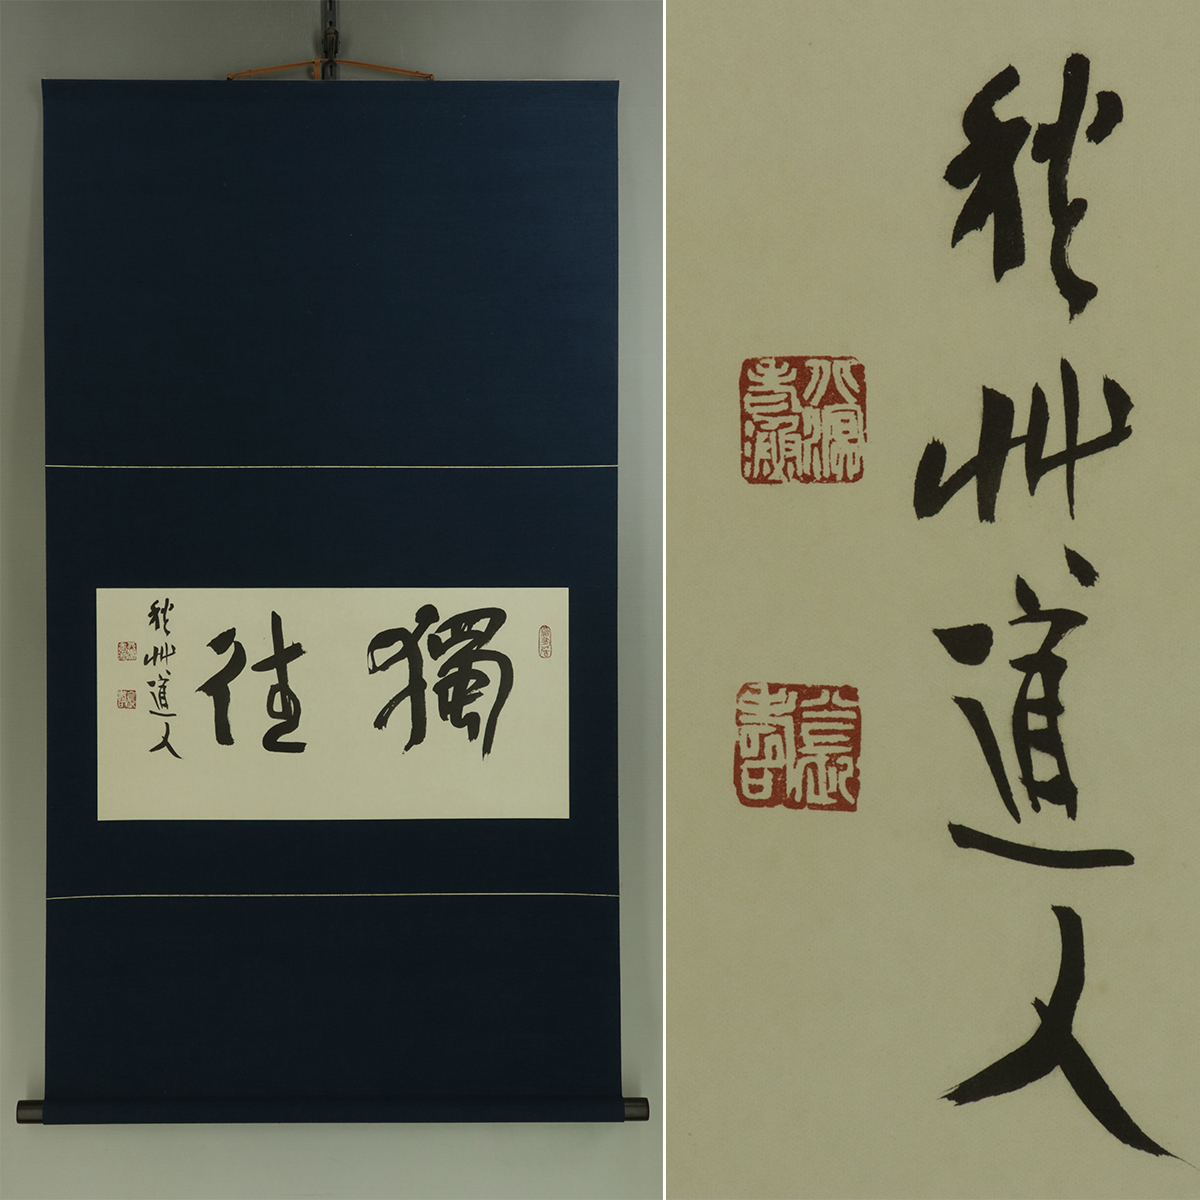 獨往
秋艸道人
秋艸道人